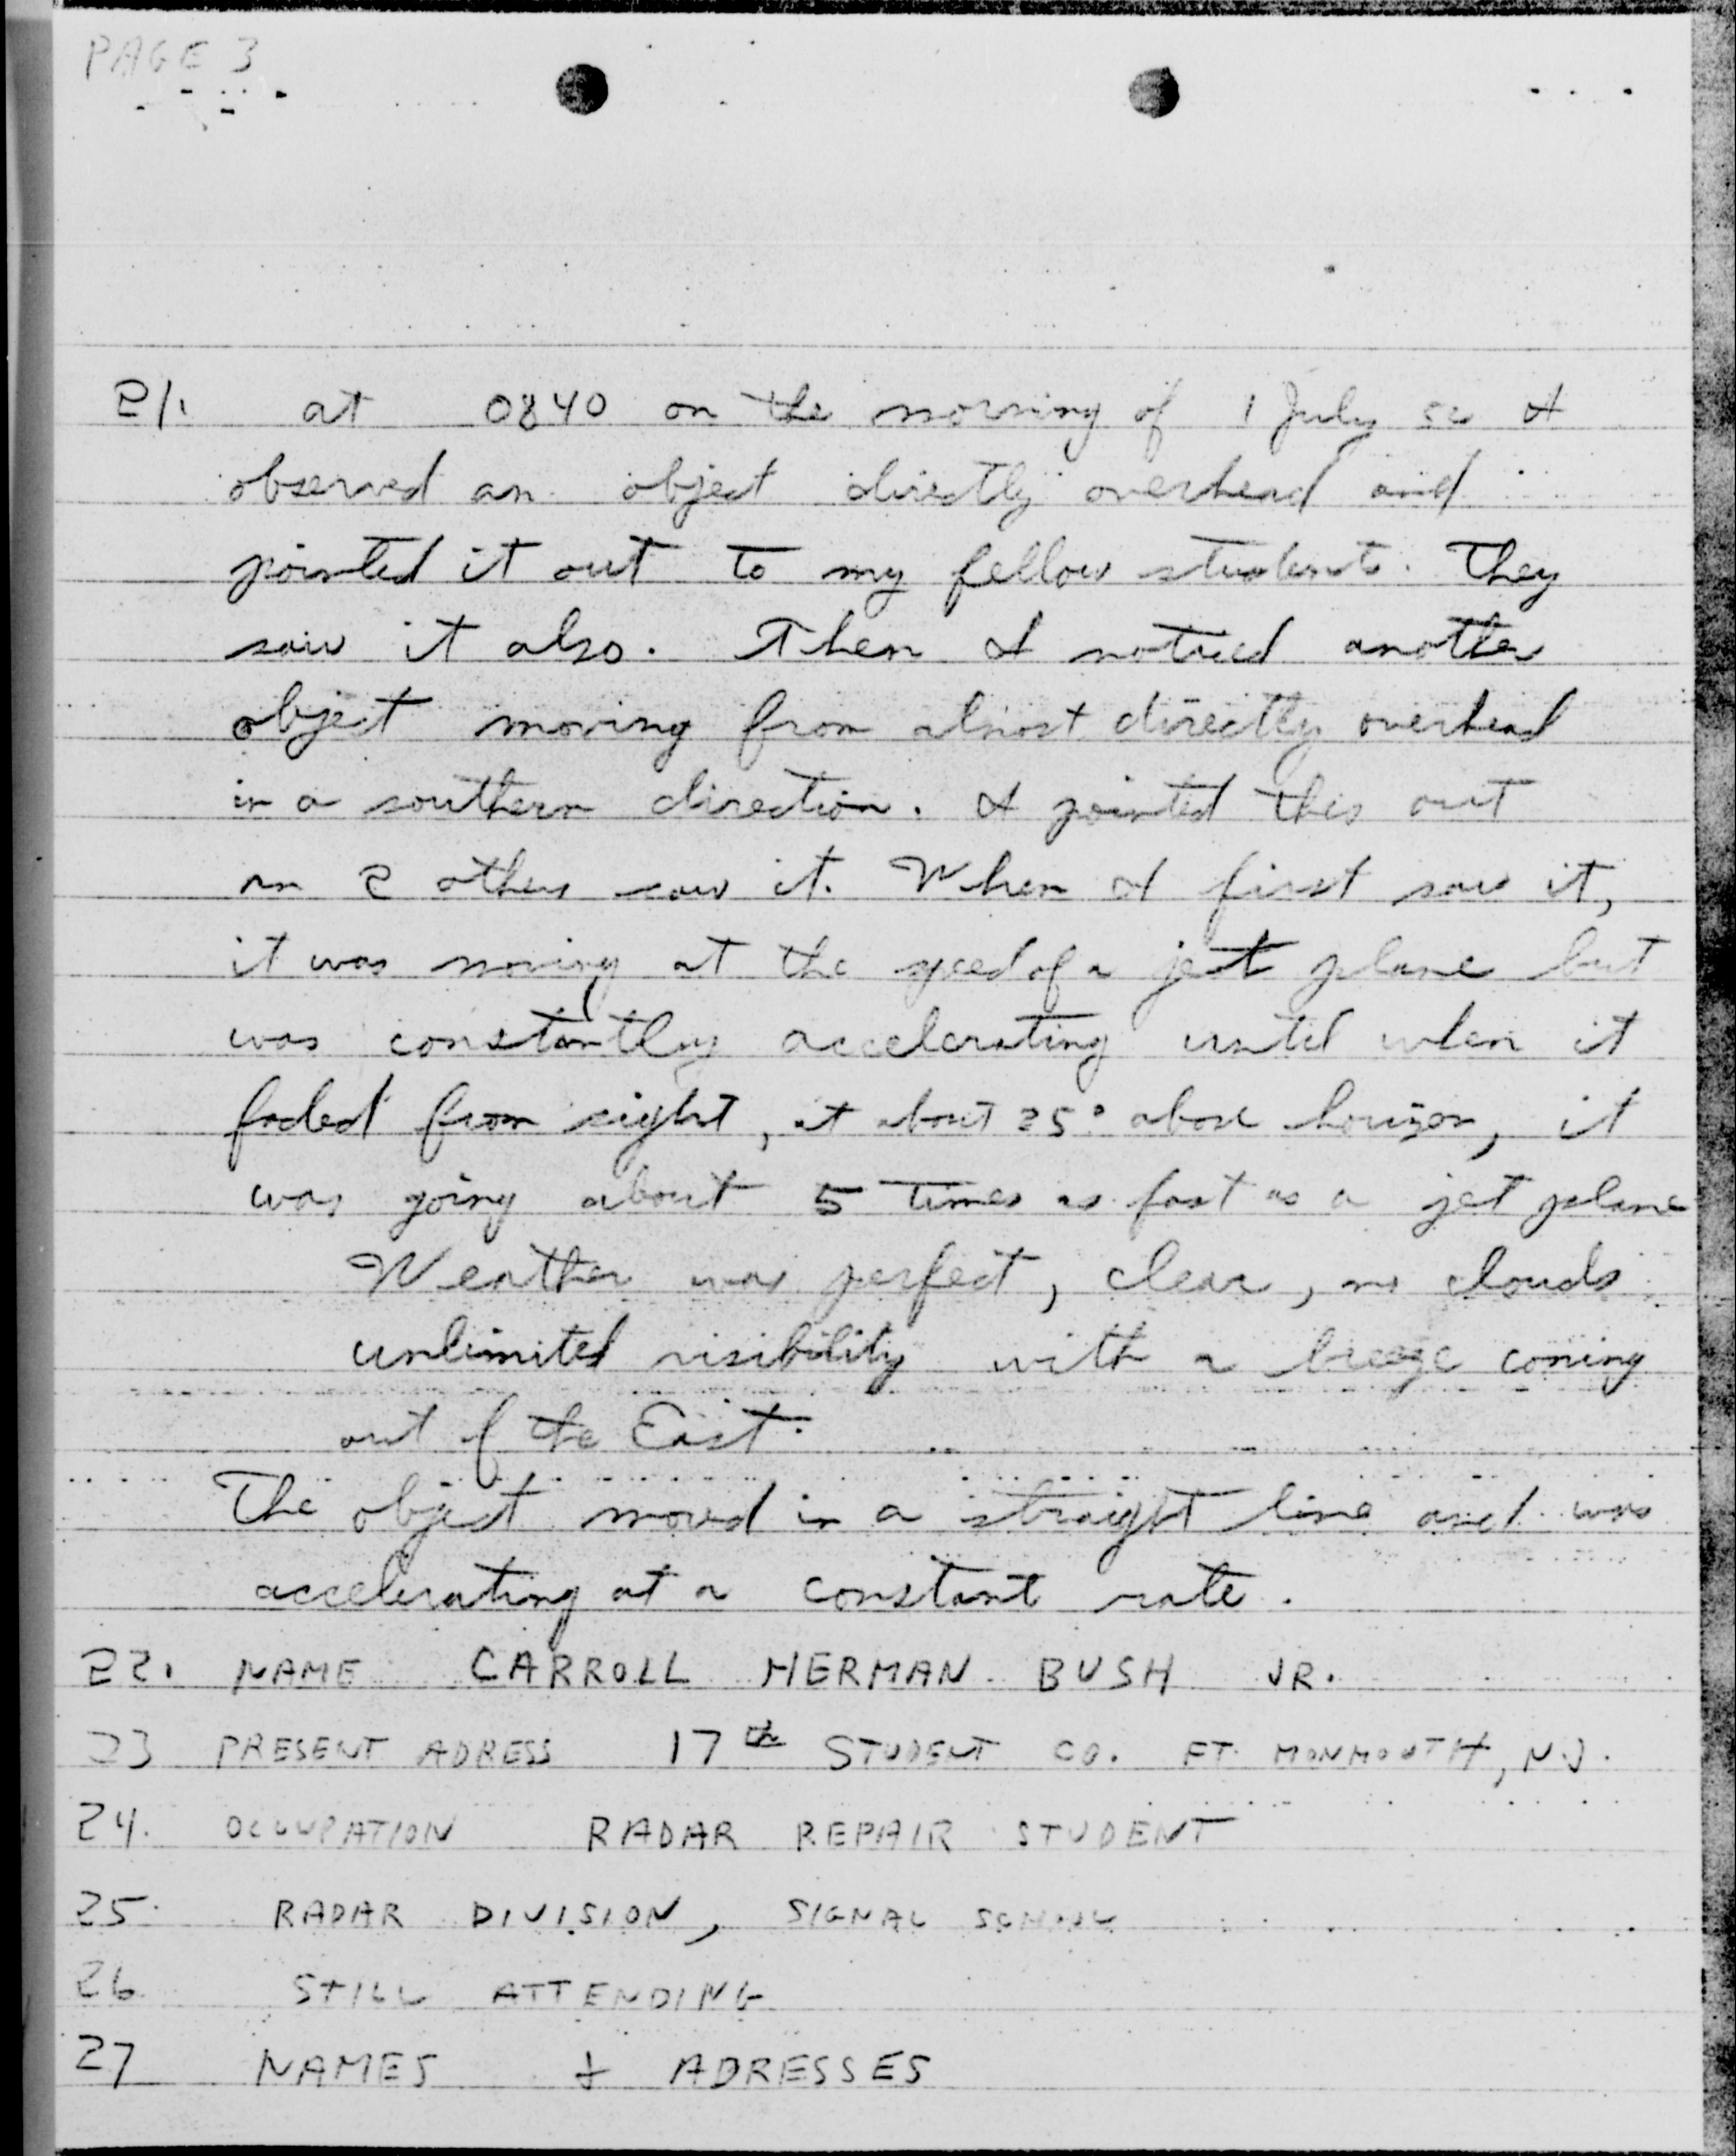 PAGE 3
21. at 0840 on the morning of 1 July I
observed an object directly overhead and
pointed it out to my fellow students. They
saw it also. Then I noticed another
object moving from almost directly overhead
in a southern direction. I pointed this out
an 2 others saw it. When I first saw it,
it was moving at the speed of a jet plane but
was constantly accelerating until when it
faded from sight, at about 25° above horizon, it
was going about 5 times as fast as a jet plane
Weather was perfect, clear, no clouds
unlimited visibility with a breeze coming
out of the East.
The object moved in a straight line and was
accelerating at a constant rate.
22. NAME CARROLL HERMAN BUSH JR.
23 PRESENT ADRESS 17th STUDENT CO. FT. MONMOUTH, N.J.
24. OCCUPATION RADAR REPAIR STUDENT
25. RADAR DIVISION, SIGNAL SCHOOL
26 STILL ATTENDING
27 NAMES + ADRESSES